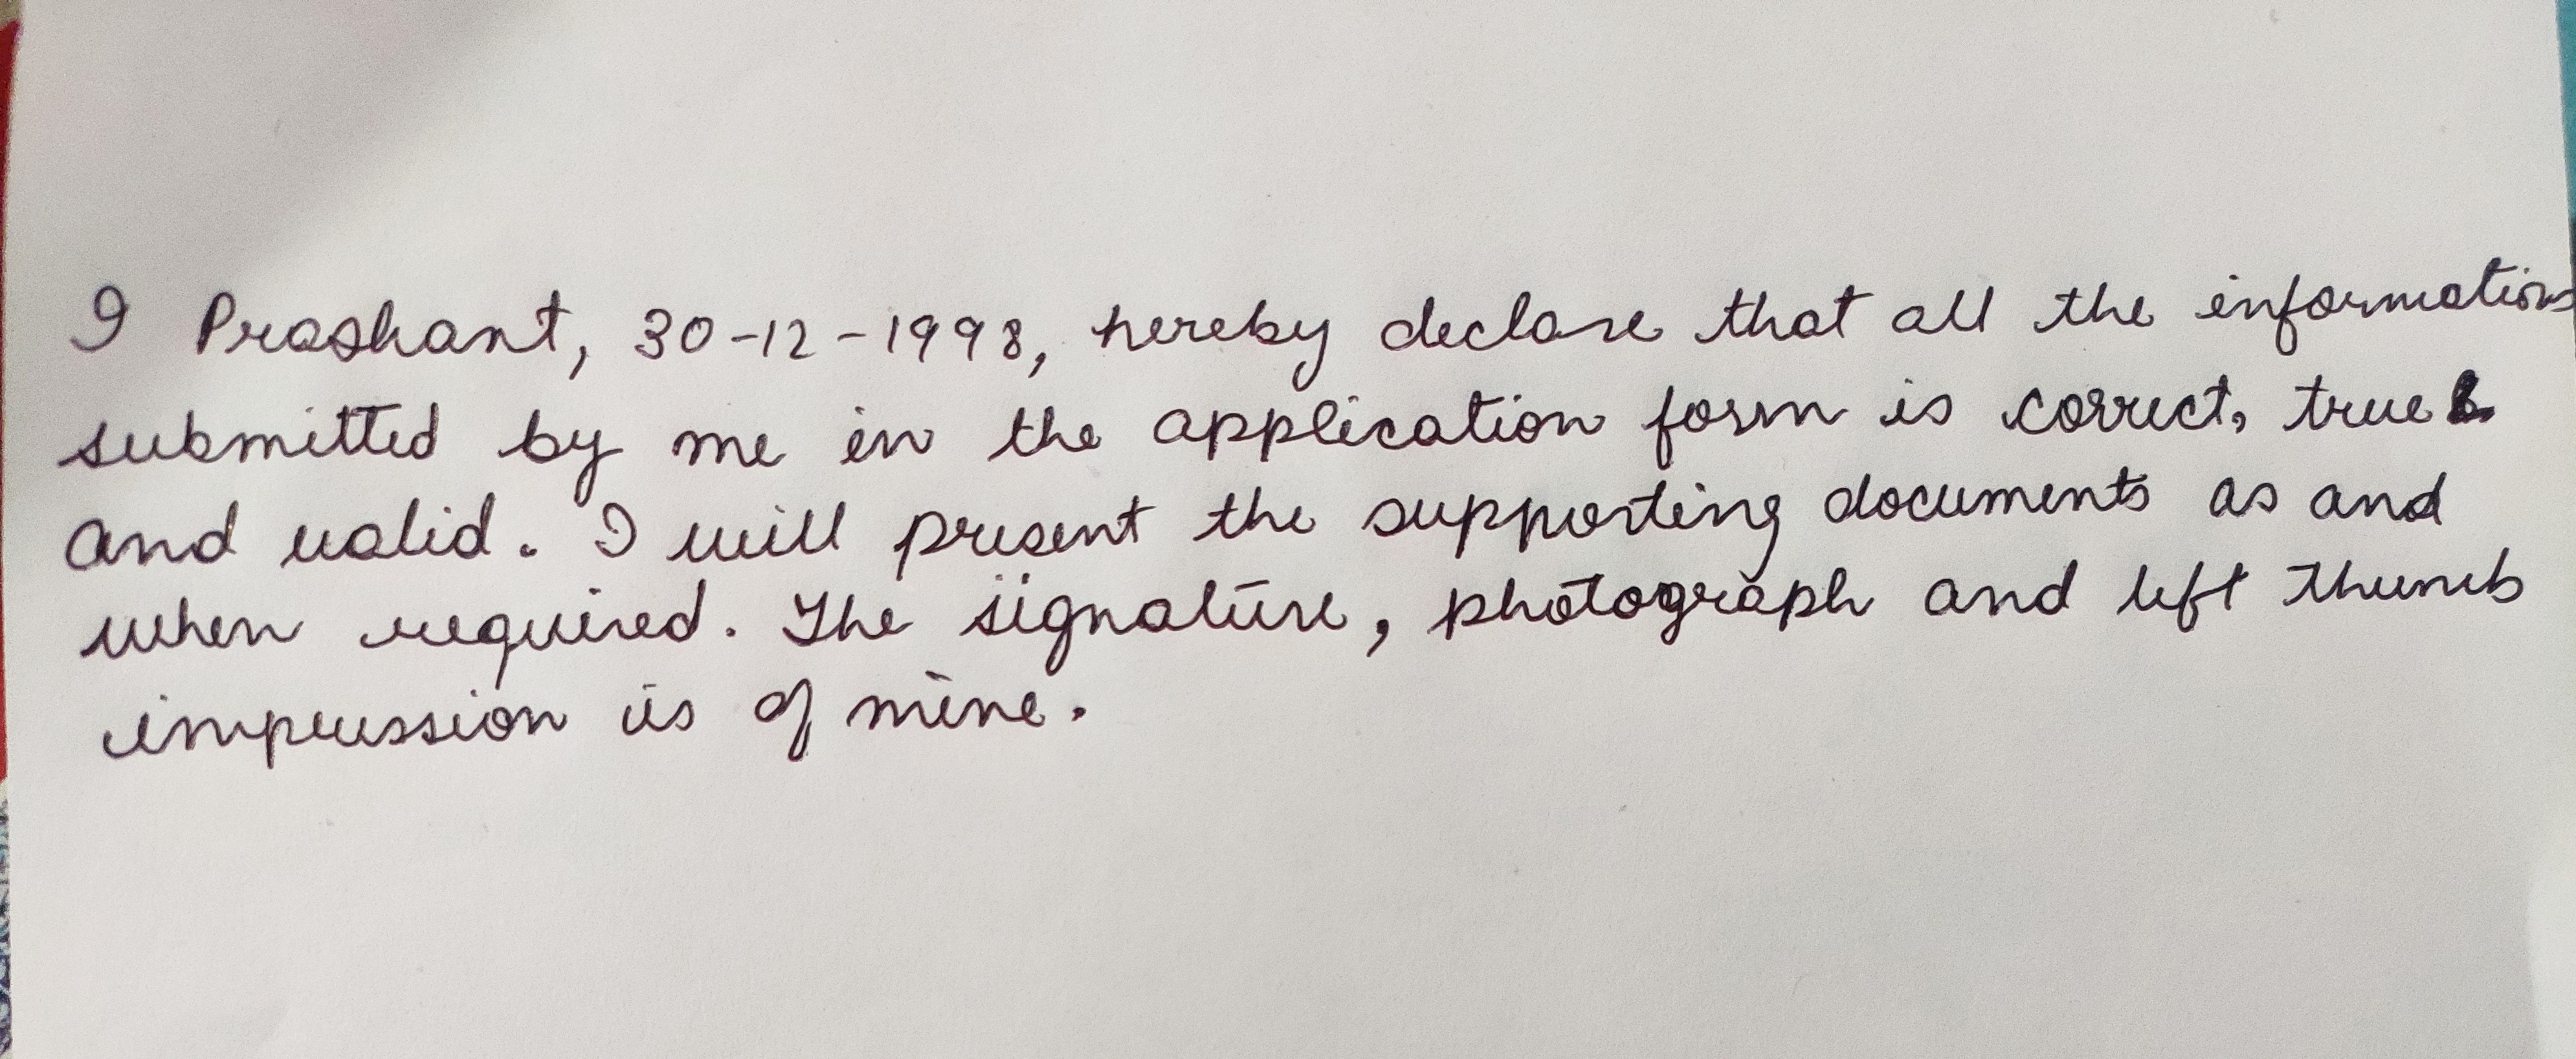 I Prashant, 30-12-1998, hereby declare that all the information
submitted by me in the application form is correct, true
and valid. I will present the supporting documents as and
when required. The signature, photograph and left thumb
impression is of mine.